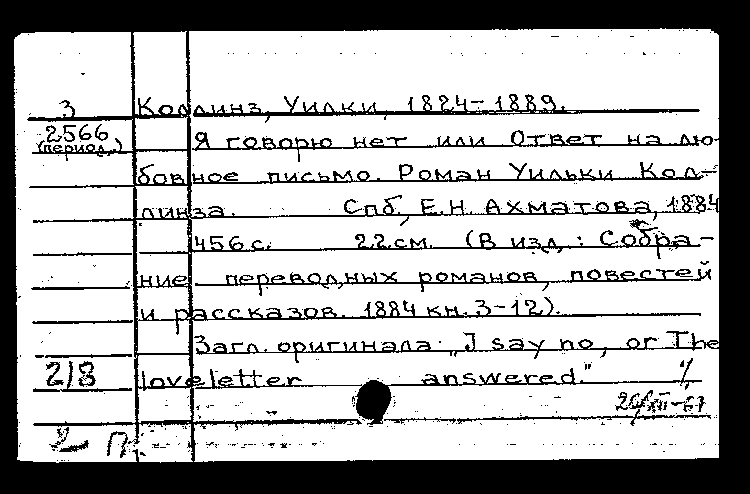 3 Коллинз, Уилки, 1824-1889.
2566 Я говорю нет или Ответ на лю-
(период.)
бовное письмо. Роман Уильки Кол-
линза. Спб., Е.Н. Ахматова, 1884
456 с. 22 см. (В изд.: Собра-
ние переводных романов, повестей
и рассказов. 1884 кн. 3-12).
Загл. оригинала: „I say no, or The
218 loveletter answered."
2 П.